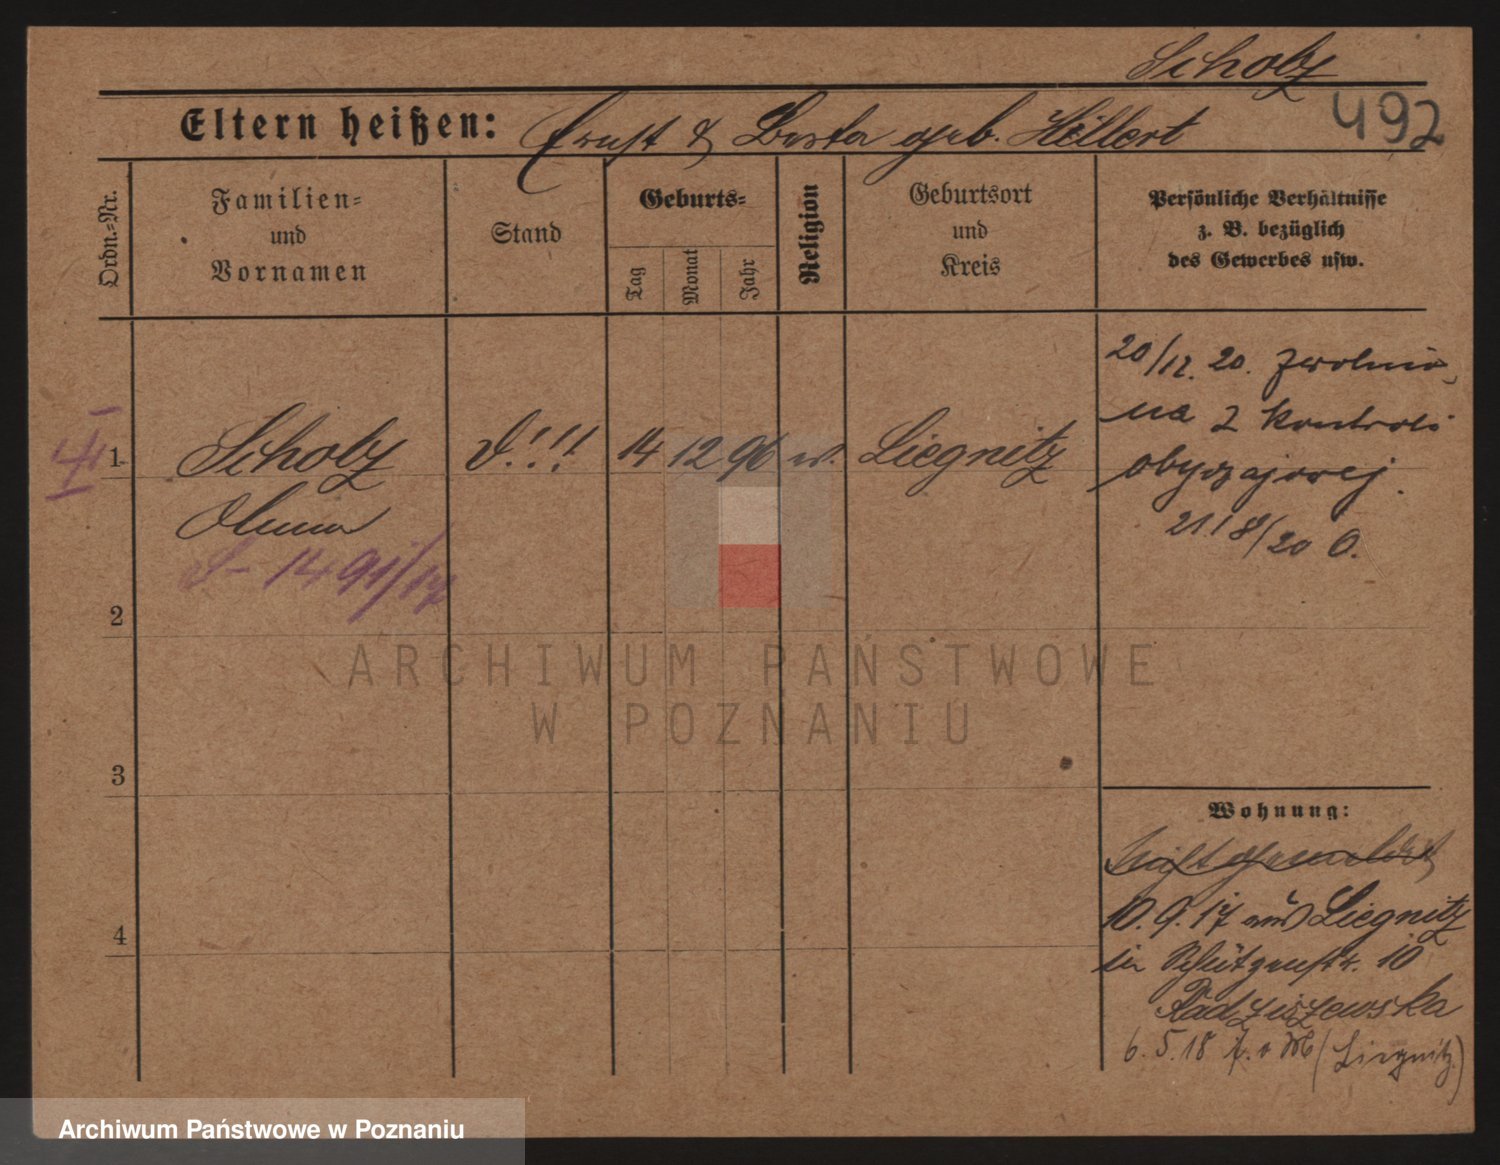 Scholz
492
Eltern heißen: Ernst & Berta geb. Hillert
Ordn.-Nr.
Familien-
und
Vornamen
Stand
Geburts-
Tag
Monat
Jahr
Religion
Geburtsort
und
Kreis
Persönliche Verhältnisse
z. B. bezüglich
des Gewerbes usw.
1 Scholz d!!! 14 12 96 ev. Liegnitz
20/12. 20. zwolnio
na z kontroli
obyczajowej.
21.
2
3
4
Wohnung:
10. 9. 17 aus Liegnitz
in Schützenstr. 10
Radziszewska
6. 5. 18 (Liegnitz)
ARCHIWUM PAŃSTWOWE
W POZNANIU
Archiwum Państwowe w Poznaniu